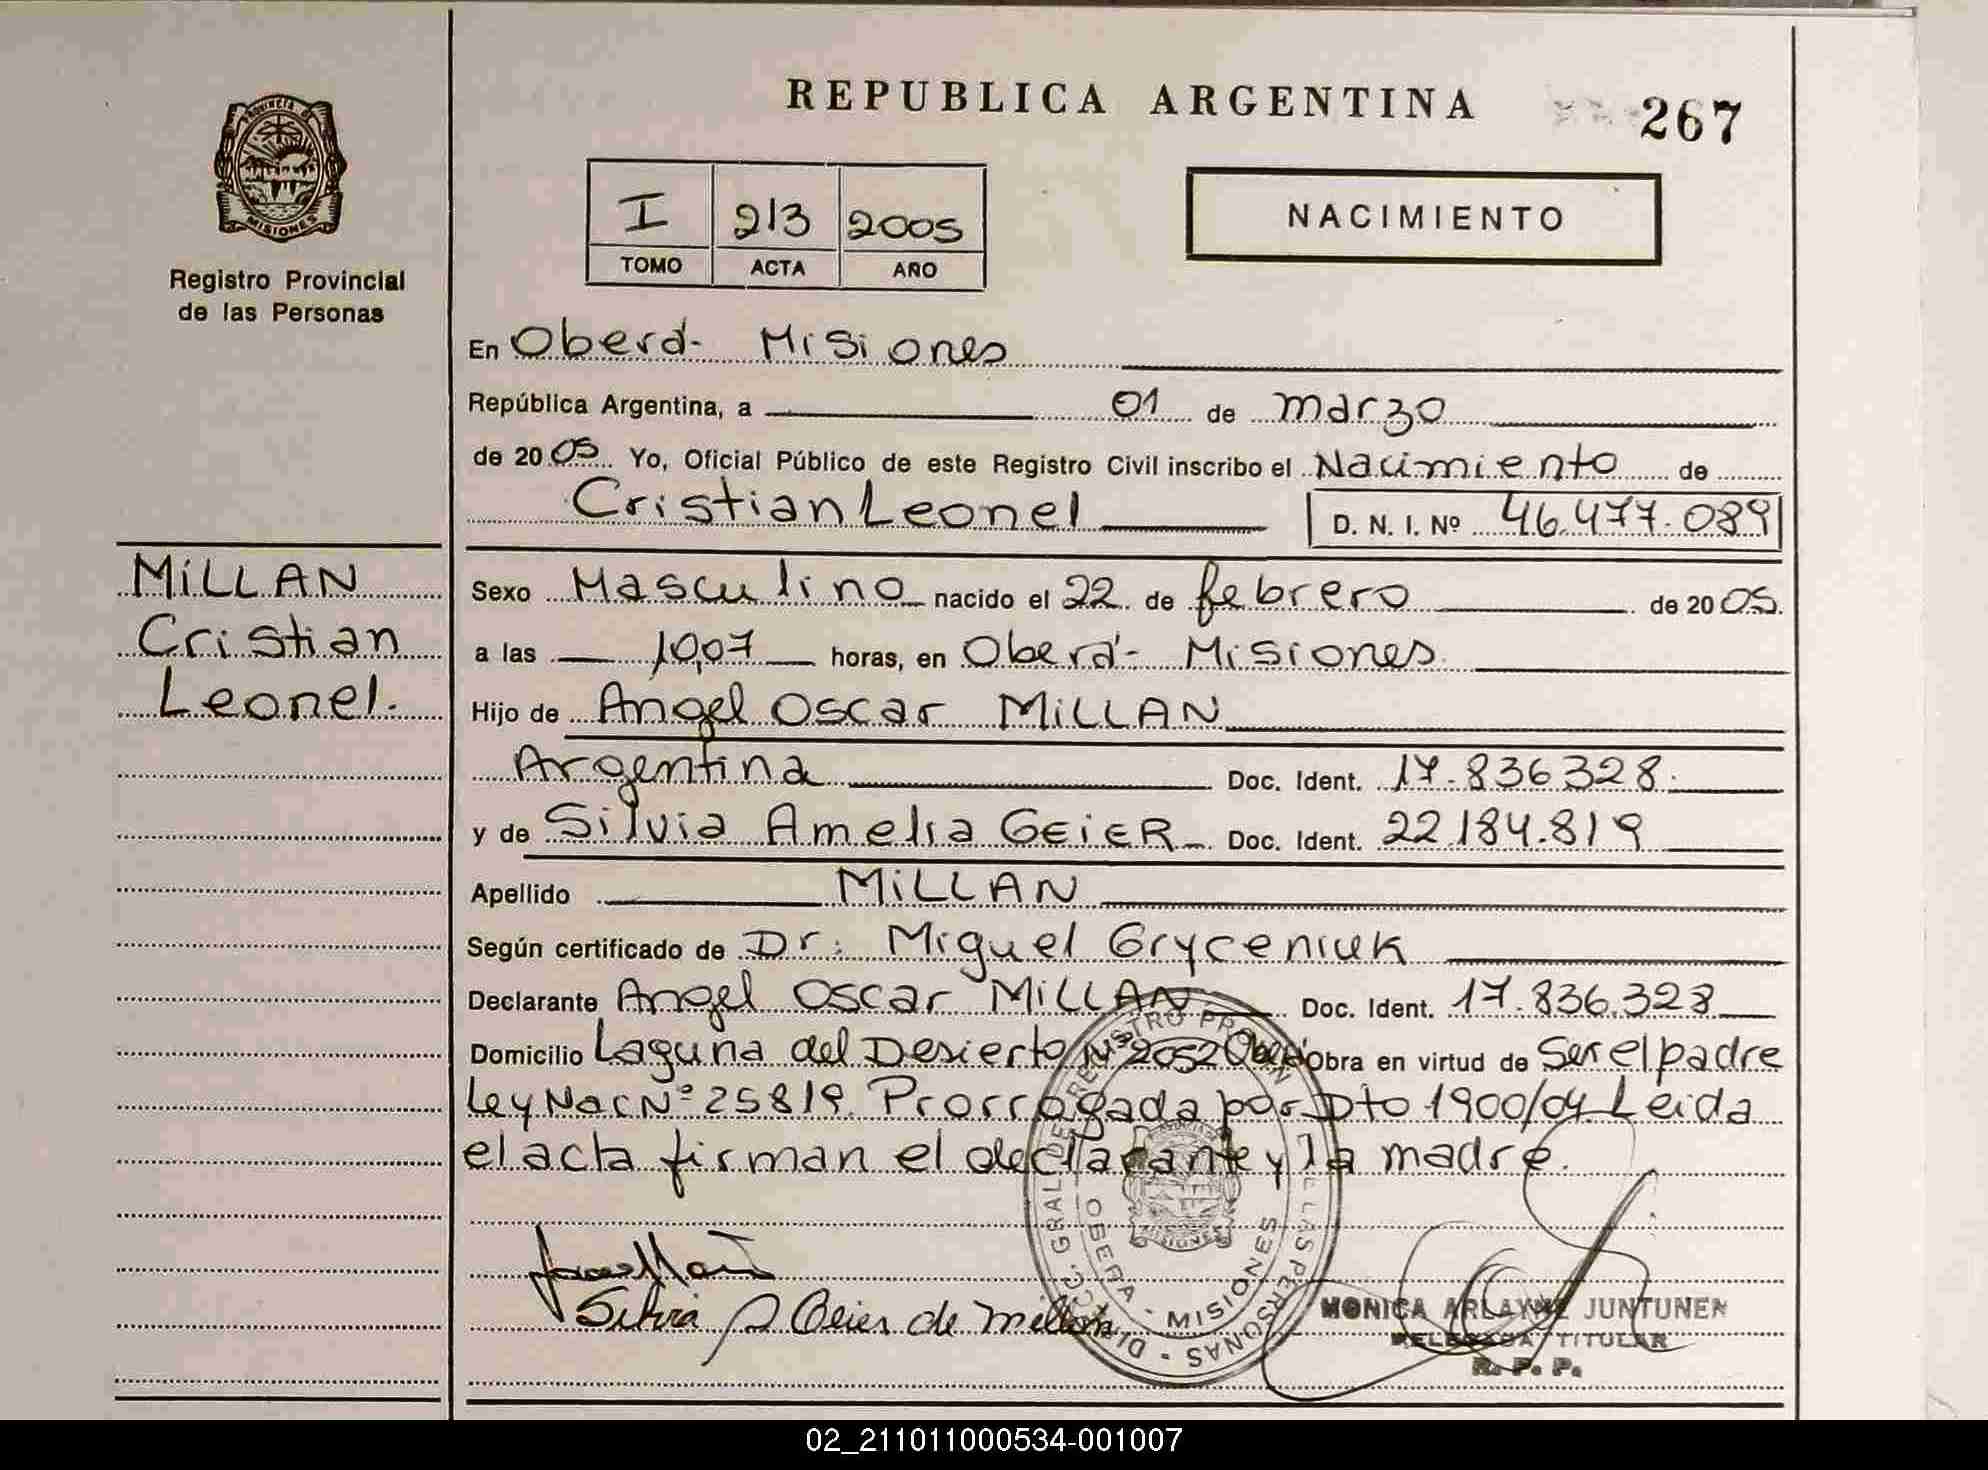 REPUBLICA ARGENTINA
267
PROVINCIA D
MISIONES
Registro Provincial
de las Personas
I 213 2005
TOMO ACTA AÑO
NACIMIENTO
En Oberá- Misiones
República Argentina, a 01 de marzo
de 2005 Yo, Oficial Público de este Registro Civil inscribo el Nacimiento de
Cristian Leonel D. N. I. Nº 46.477.089
MiLLAN
Cristian
Leonel.
Sexo Masculino nacido el 22 de febrero de 2005.
a las 10,07 horas, en Oberá- Misiones
Hijo de Angel Oscar MiLLAN
Argentina Doc. Ident. 17.836.328.
y de Silvia Amelia GEiER Doc. Ident. 22.184.819
Apellido MiLLAN
Según certificado de Dr: Miguel Gryceniuk
Declarante Angel Oscar MiLLAN Doc. Ident. 17.836.328
Domicilio Laguna del Desierto Nº 2052 Oberá Obra en virtud de Ser el padre
Ley Nac Nº 25819. Prorrogada por Dto 1900/04. Leida
el acta firman el declarante y la madre.
Silvia A Geier de Millán
OBERA - MISIONES
MONICA ARLAYNE JUNTUNEN
DELEGADA TITULAR
R. P. P.
02_211011000534-001007